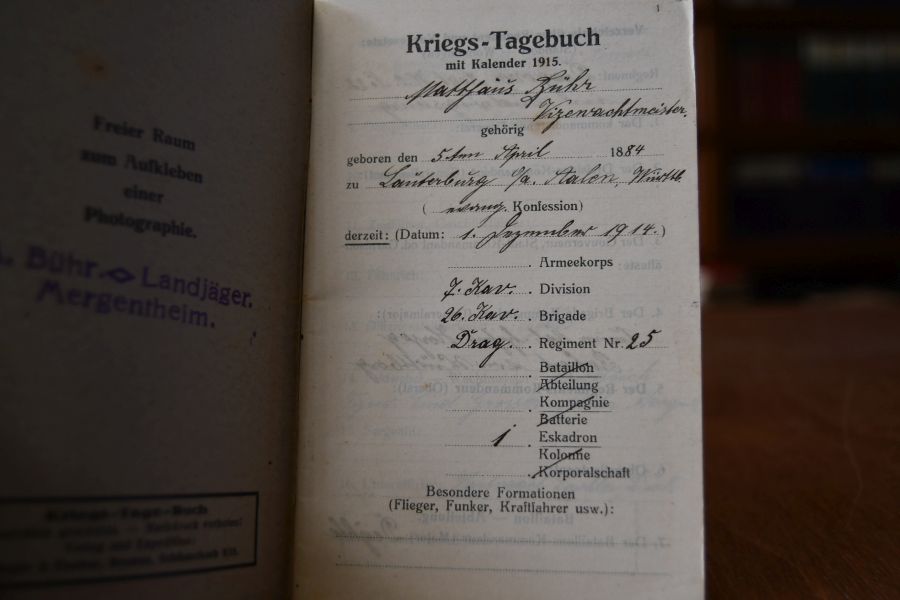 Freier Raum
zum Aufkleben
einer
Photographie.
Bühr. Landjäger.
Mergentheim.
Kriegs-Tage-Buch
1
Kriegs-Tagebuch
mit Kalender 1915.
Matthäus Bühr
Vizewachtmeister.
gehörig
geboren den 5ten April 1884
zu Lauterburg O/a. Aalen, Württb.
( evang. Konfession)
derzeit: (Datum: 1. Dezember 1914.)
Armeekorps
7. Kav. Division
26. Kav. Brigade
Drag. Regiment Nr. 25
Bataillon
Abteilung
Kompagnie
Batterie
1 Eskadron
Kolonne
Korporalschaft
Besondere Formationen
(Flieger, Funker, Kraftfahrer usw.):